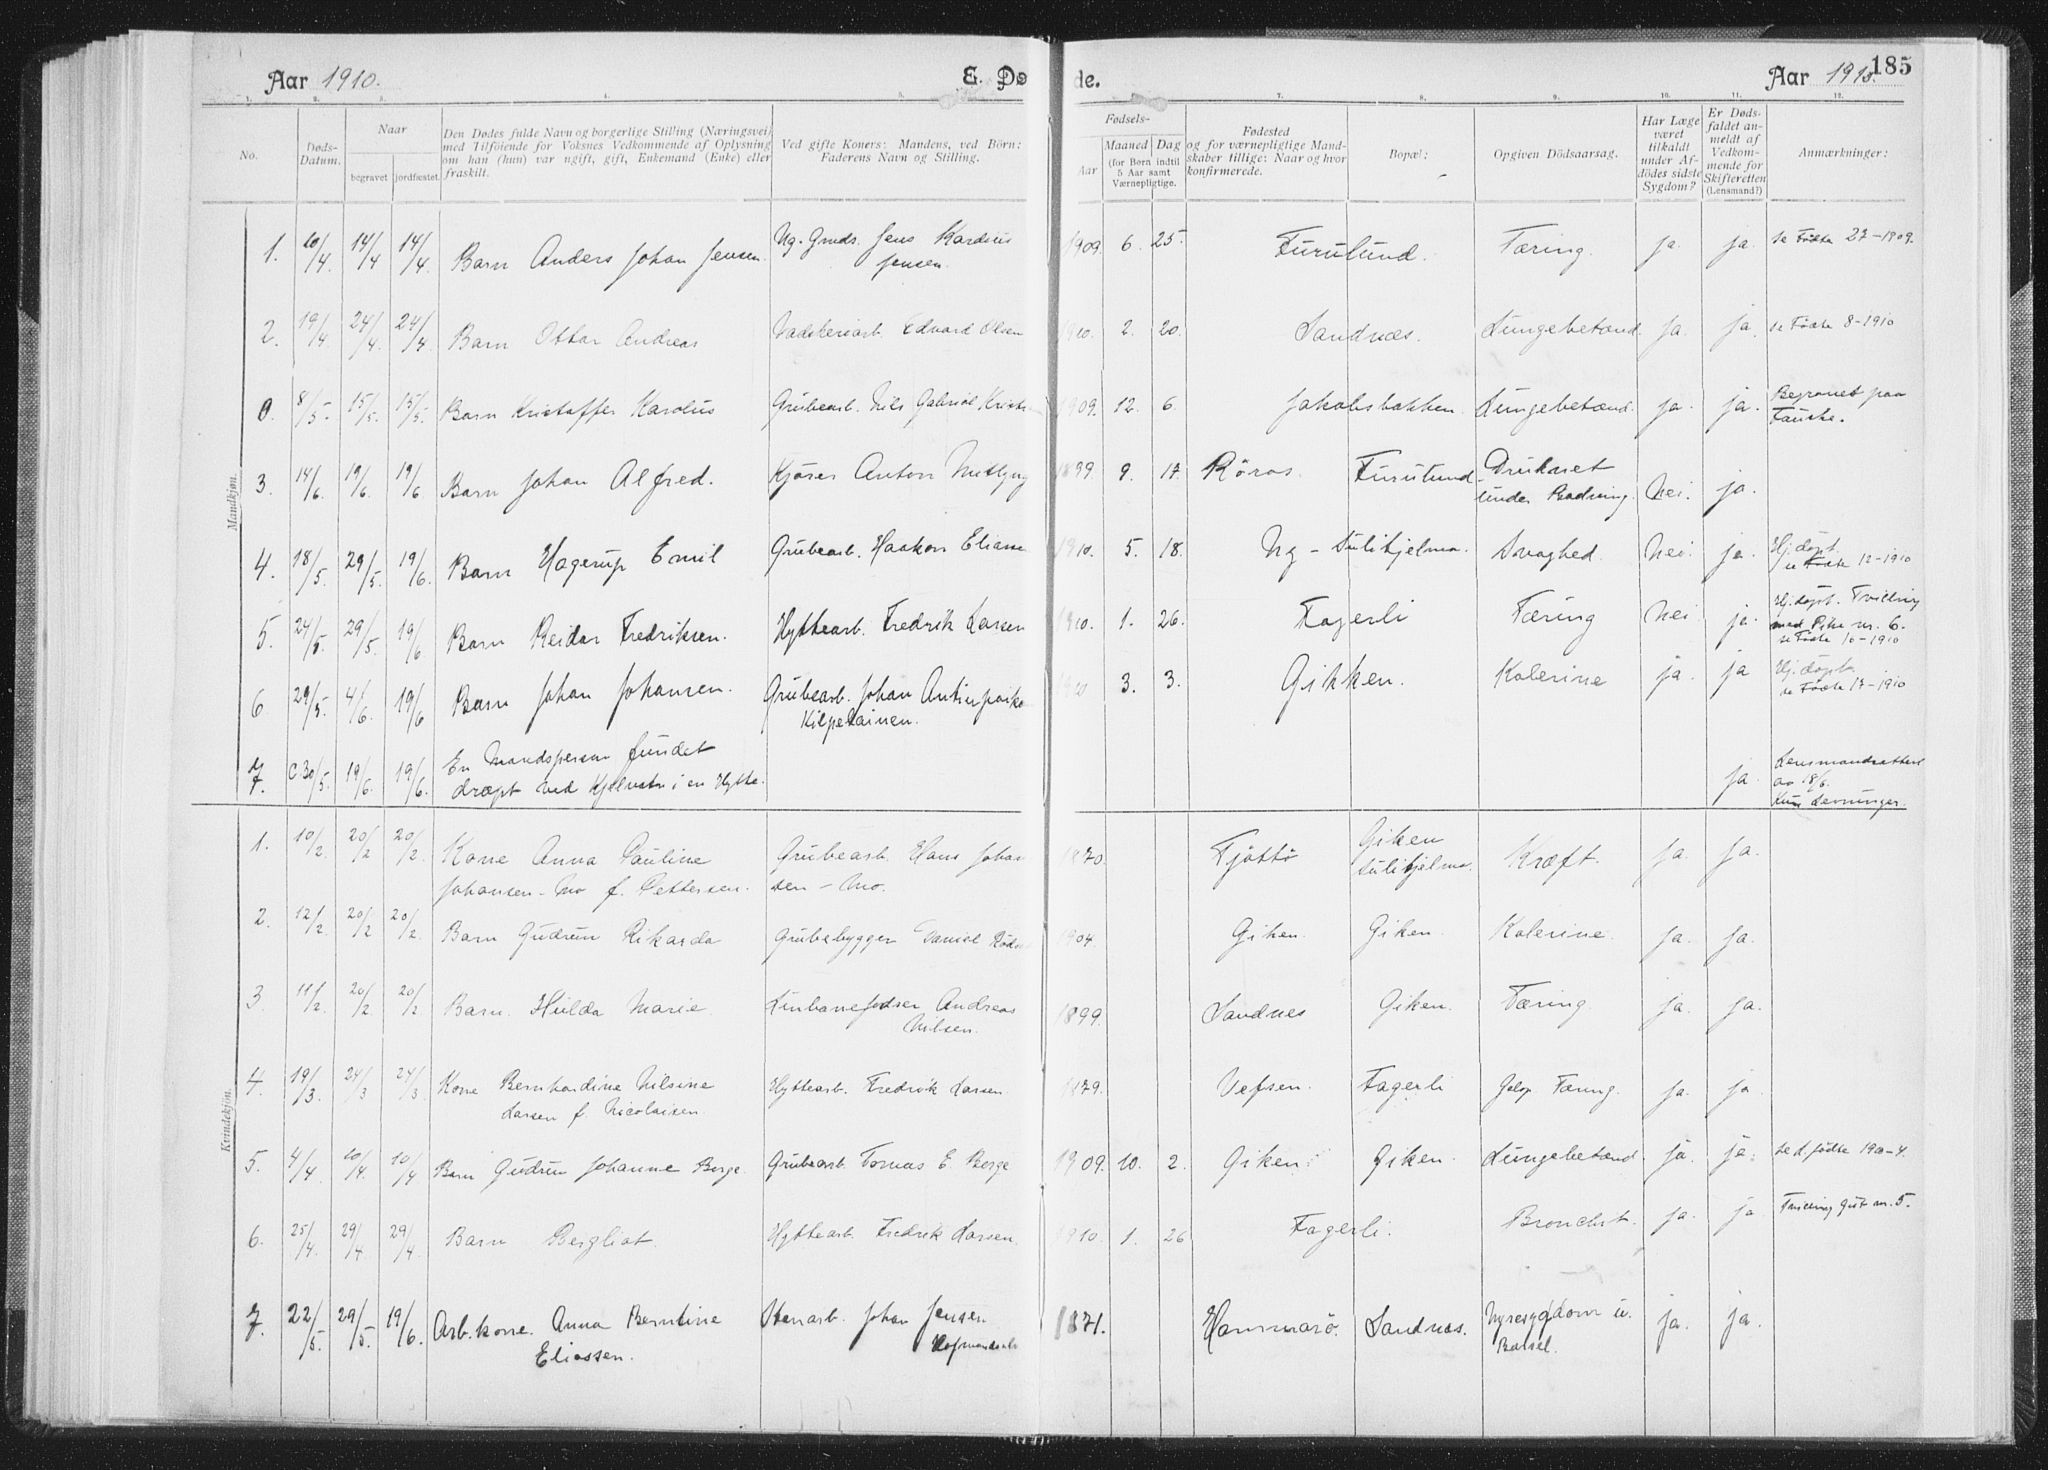 Aar 1910. E. Dø
de. Aar 1910. 185
1. 2. 3. 4. 5. 7. 8. 9. 10. 11. 12.
No.
Døds-
Datum.
Naar
begravet jordfæstet.
Den Dödes fulde Navn og borgerlige Stilling (Næringsvei)
med Tilföiende for Voksnes Vedkommende af Oplysning
om han (hun) var ugift, gift, Enkemand (Enke) eller
fraskilt.
Ved gifte Koners: Mandens, ved Börn:
Faderens Navn og Stilling.
Fødsels-
Aar
Maaned
(for Børn indtil
5 Aar samt
Værnepligtige.
Dag
Fødested
og for værnepligtige Mand-
skaber tillige: Naar og hvor
konfirmerede.
Bopæl:
Opgiven Dödsaarsag.
Har Læge
været
tilkaldt
under Af-
dödes sidste
Sygdom?
Er Døds-
faldet an-
meldt af
Vedkom-
mende for
Skifteretten
(Lensmand?)
Anmærkninger:
Mandkjøn.
1. 10/4 14/4 14/4. Barn Anders Johan Jensen. Ng. Grnds. Jens Kardius
Jensen. 1909. 6. 25. Furulund. Tæring. ja. ja. se Födte 27-1909.
2. 19/4 24/4. 24/4 Barn Ottar Andreas Vaskeriarb. Edvard Olsen 1910. 2. 20. Sandnes. Lungebetænd. ja. ja. se Födte 8-1910
0. 8/5. 15/5. 15/5. Barn Kristoffer Karolus Grubearb. Nils Gabriel 1909. 12. 6. Jakobsbakken. Lungebetænd. ja. ja. Begravet paa
Fauske.
3. 14/6. 19/6. 19/6 Barn Johan Alfred. Kjörer Anton 1899 9. 17. Röros. Furulund Druknet
under Badning. Nei. ja.
4. 18/5. 29/5. 19/6. Barn Hagerup Emil Grubearb. Haakon 1910. 5. 18. Ng - Sulitjelma. Svaghed. Nei. ja. Hj.döpt.
se Födte 12-1910
5. 24/5. 29/5. 19/6 Barn Reidar Fredriksen. Hyttearb. Fredrik Larsen 1910. 1. 26. Fagerli Tæring Nei ja. Hj.döpt. Tvilling
med Pike nr. 6.
se Födte 10-1910
6. 29/5. 4/6. 19/6 Barn Johan Johansen. Grubearb. Johan
Kilpelainen. 1910 3. 3. Gikken. Kolerine ja. ja Hj.döpt.
se Födte 13-1910
7. C 30/5. 19/6. 19/6. En Mandsperson fundet
dræpt ved Kjelvatn i en Hytte. ja. Lensmandsattest
av 18/6.
Kun Levninger.
Kvindekjön.
1. 10/2 20/2 20/2. Kone Anna Pauline
Johansen-Mo f. Pettersen. Grubearb. Hans Johan
sen - Mo. 1870. Tjöttö Giken
Sulitjelma. Kræft. ja. ja.
2. 12/2. 20/2 20/2. Barn Gudrun Rikarda Grubebygger Daniel 1904. Giken. Giken. Kolerine. ja. ja.
3 11/2. 20/2 20/2 Barn. Hulda Marie Andreas
Nilsen. 1899. Sandnes Giken. Tæring. ja. ja.
4. 19/3. 24/3 24/3. Kone Bernhardine Nilsine
Larsen f. Nicolaisen. Hyttearb. Fredrik Larsen 1879. Vefsen. Fagerli Galop. Tæring. ja. ja
5. 4/4. 10/4. 10/4 Barn Gudrun Johanne Berge. Grubearb. Tomas E. Berge 1909. 10. 2. Giken. Giken. Lungebetænd. ja. ja. se d. födte 1910-4.
6. 25/4. 29/4. 29/4. Barn Bergliot Hyttearb. Fredrik Larsen. 1910. 1. 26 Fagerli. Bronchit. ja. ja Tvilling Gut nr. 5.
7. 22/5. 29/5. 19/6. Arb.kone. Anna Berntine
Eliassen. Stenarb. Johan Jensen
1871. Hammarö. Sandnes. Nyresygdom u.
Barsel. ja. ja.